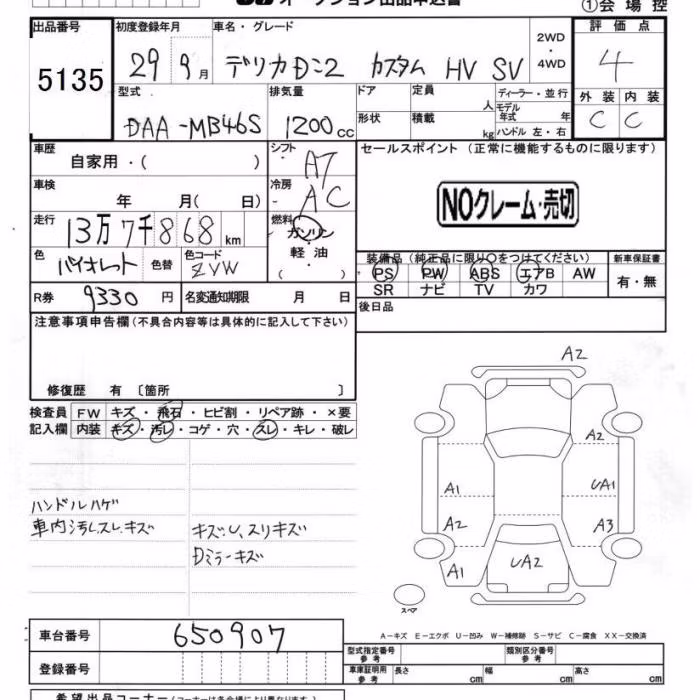 オークション出品申込書
①会場控
出品番号 初度登録年月 車名・グレード 評価点
5135
29 9月 デリカD:2 カスタム HV SV
2WD
・
4WD
4
型式 排気量 ドア 定員 人 ディーラー・並行 外装 内装
DAA-MB46S 1200cc 形状 積載 kg モデル年式 年 C C
ハンドル 左・右
車歴 シフト セールスポイント (正常に機能するものに限ります)
自家用・( ) AT
車検 冷房
年 月( 日) AC
NOクレーム・売切
走行 燃料
13万7千868km ガソリン
・
軽油
・
( )
色 色替 色コード
バイオレット ZVW
装備品 (純正品に限り○をつけてください) 新車保証書
PS PW ABS エアB AW 有・無
SR ナビ TV カワ
R券 9330円 名変通知期限 月 日
後日品
注意事項申告欄(不具合内容等は具体的に記入して下さい)
修復歴 有〔箇所 〕
検査員 FW キズ・飛石・ヒビ割・リペア跡・×要
記入欄 内装 キズ・汚レ・コゲ・穴・スレ・キレ・破レ
ハンドルハゲ
車内汚レスレ、キズ
キズ、U、スリキズ
Dミラーキズ
A2
A2
A1 UA1
A2 A3
A1 UA2
スペア
A－キズ E－エクボ U－凹み W－補修跡 S－サビ C－腐食 XX－交換済
車台番号 650907
登録番号
型式指定番号 参考 類別区分番号 参考
車庫証明用 参考 長さ cm 幅 cm 高さ cm
希望出品コーナー(コーナーは各会場により異なります)